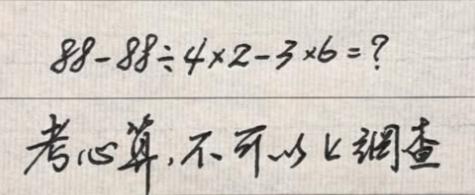 88-88÷4×2-3×6=?
考心算,不可以上调查